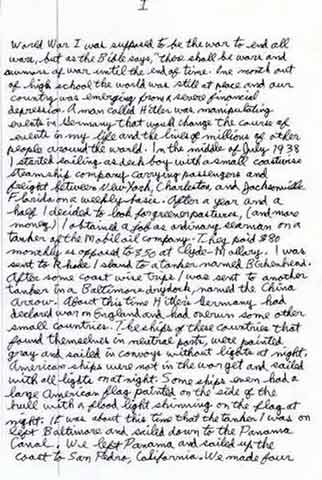 1
World War I was supposed to be the war to end all
wars, but as the Bible says, "there shall be wars and
rumors of war until the end of time. One month out
of high school the world was still at peace and our
country was emerging from a severe financial
depression. A man called Hitler was manipulating
events in Germany that would change the course of
events in my life and the lives of millions of other
people around the world. In the middle of July 1938
I started sailing as deck boy with a small coastwise
steamship company carrying passengers and
freight between New York, Charleston, and Jacksonville
Florida on a weekly basis. After a year and a
half I decided to look for greener pastures, (and more
money) I obtained a job as ordinary seaman on a
tanker of the Mobil oil company. They paid $80
monthly as opposed to $50 at Clyde-Mallory. I was
sent to Rhode Island to a tanker named Birkenhead.
After some coast wise trips I was sent to another
tanker in a Baltimore drydock, named the China
Arrow. About this time Hitler's Germany had
declared war on England and had overun some other
small countries. The ships of these countries that
found themselves in neutral ports, were painted
gray and sailed in convoys without lights at night.
American ships were not in the war yet and sailed
with all lights on at night. Some ships even had a
large American flag painted on the side of the
hull with a flood light shinning on the flag at
night. It was about this time that the tanker I was on
left Baltimore and sailed down to the Panama
Canal. We left Panama and sailed up the
coast to San Pedro, California. We made four